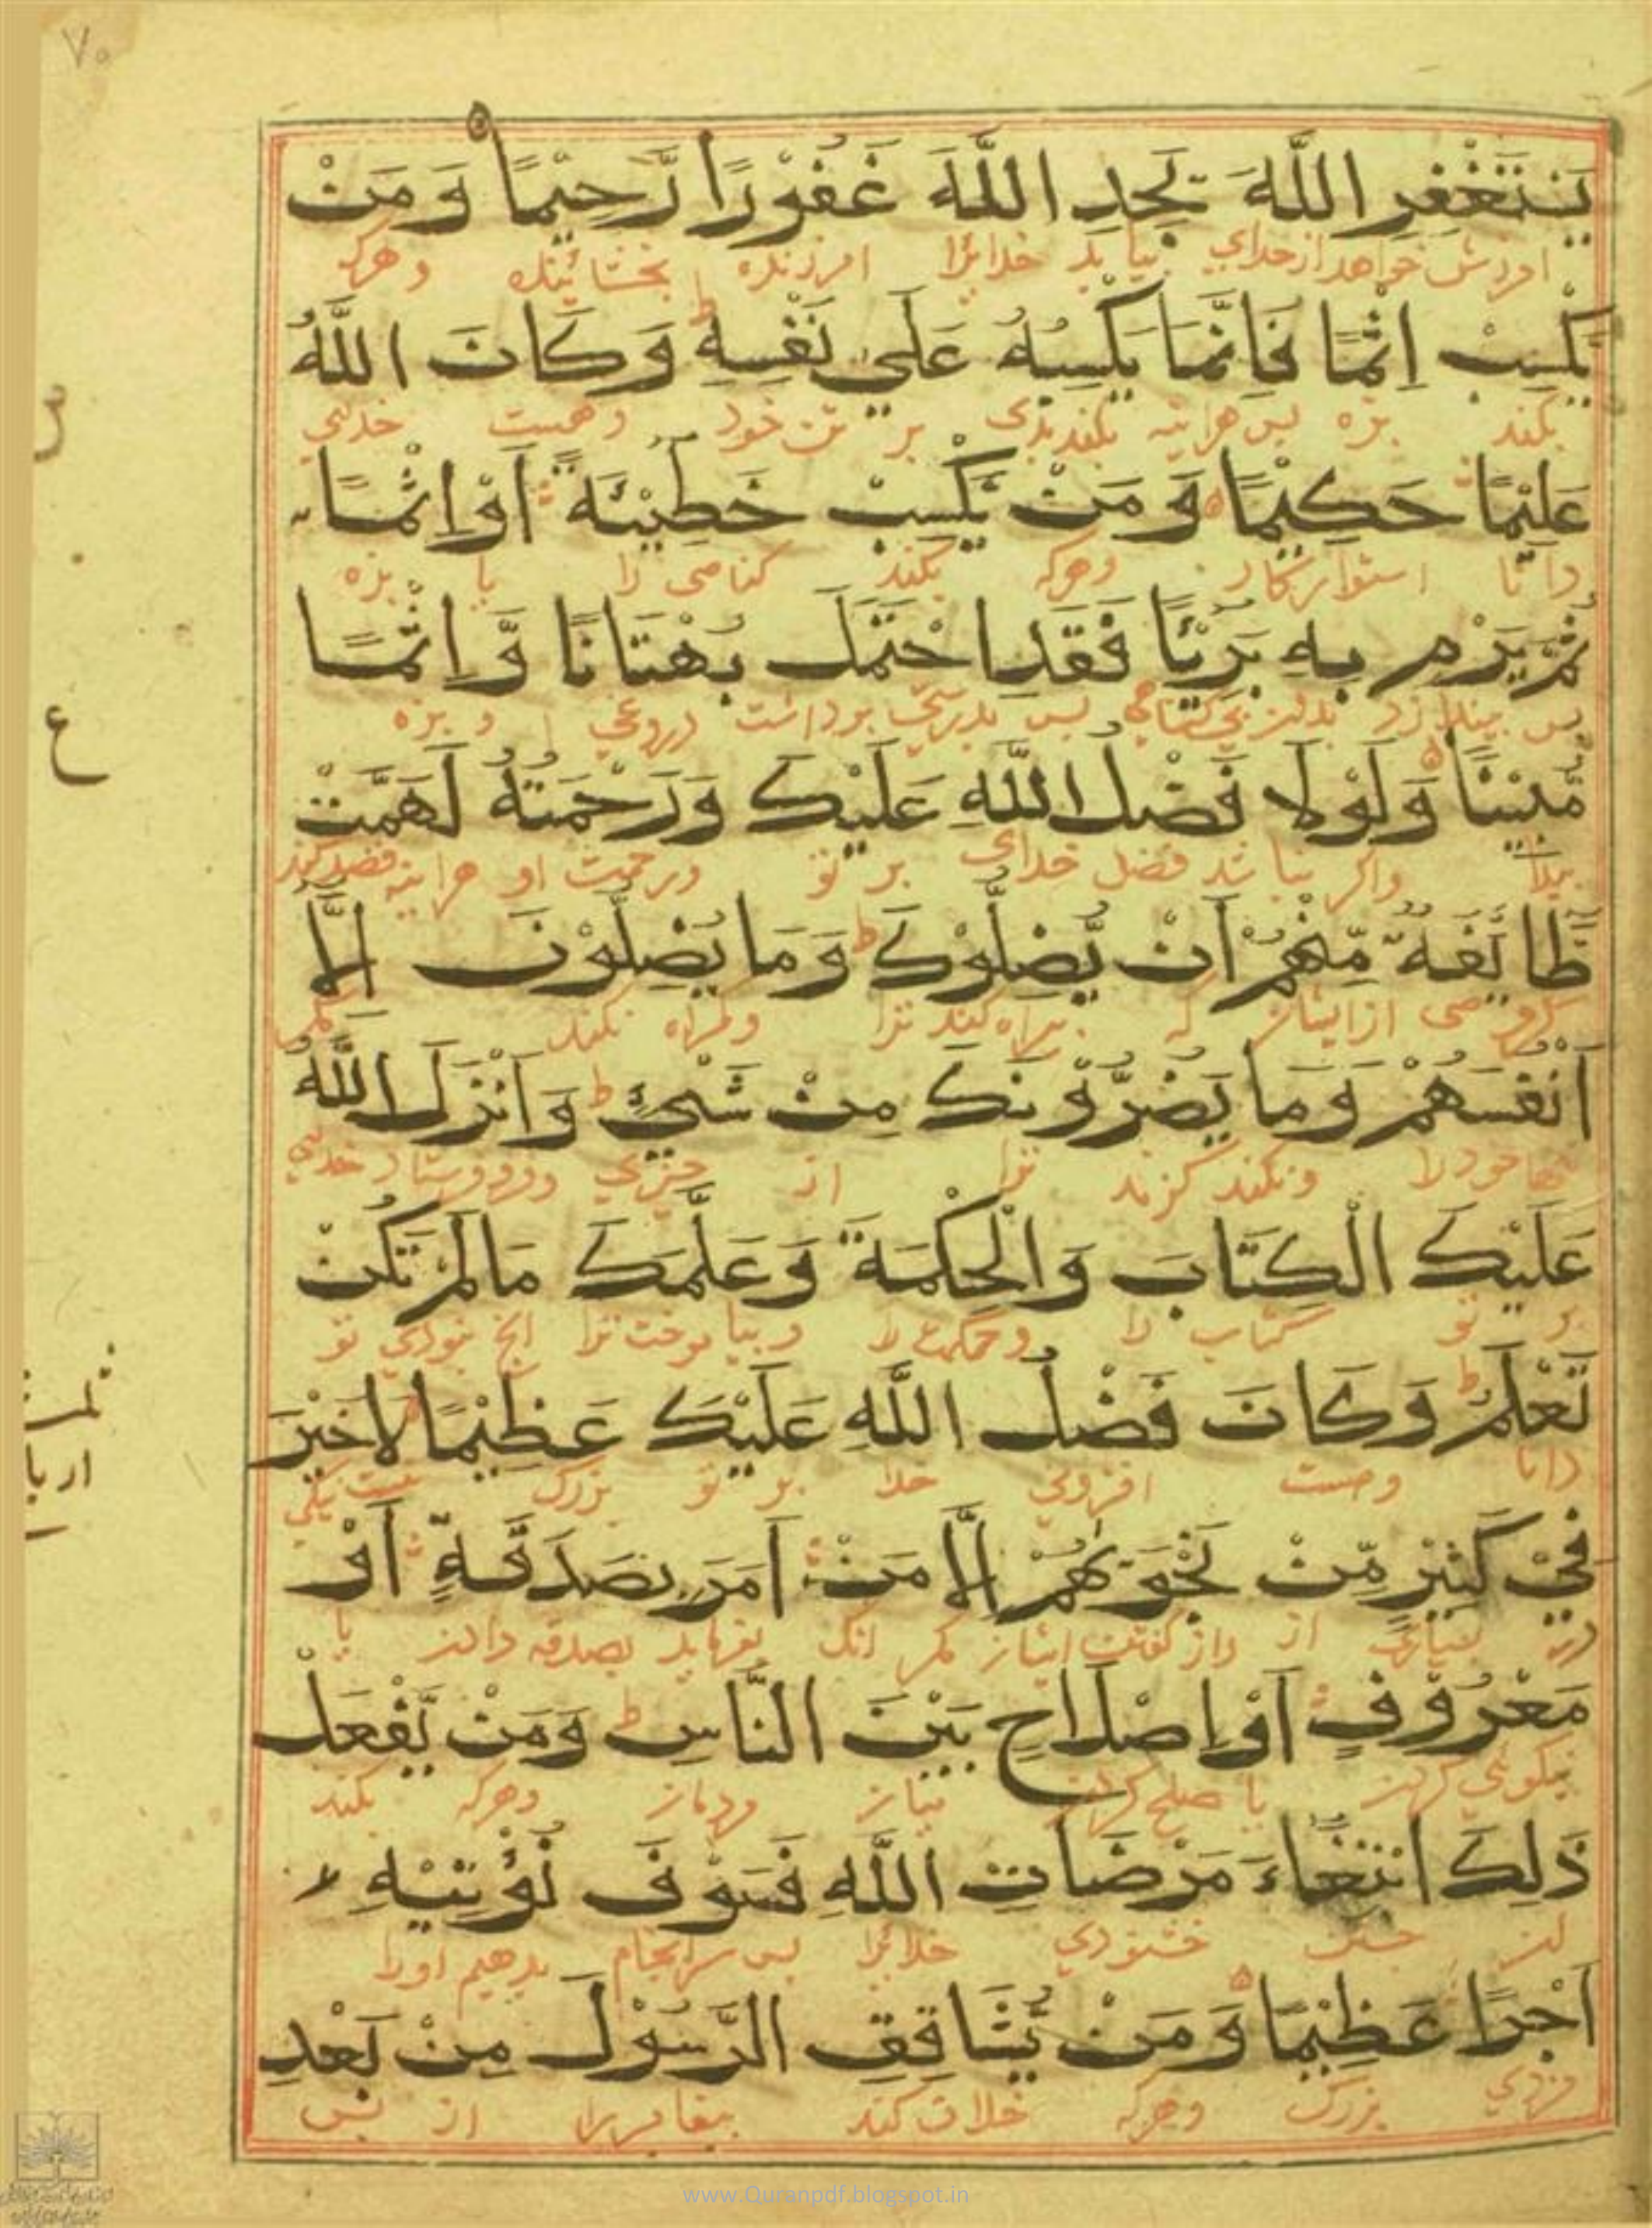 ۷۰
يَسْتَغْفِرِ اللَّهَ يَجِدِ اللَّهَ غَفُوْرًا رَّحِيْمًا وَ مَنْ
خواهد از خدای بیابد خدایرا امرزنده بخشاینده و هرکه
يَّكْسِبْ اِثْمًا فَاِنَّمَا يَكْسِبُهُ عَلٰى نَفْسِهٖ ط وَ كَانَ اللَّهُ
بکند بزه پس هراینه بر تن خود و هست خدای
عَلِيْمًا حَكِيْمًا وَ مَنْ يَّكْسِبْ خَطِيْئَةً اَوْ اِثْمًا
دانا استوارکار وهرکه بکند کناهی را یا بزه
ثُمَّ يَرْمِ بِهٖ بَرِيْئًا فَقَدِ احْتَمَلَ بُهْتَانًا وَّ اِثْمًا
پس بدان پس بدرستی برداشت دروغی و بزه
مُّبِيْنًا وَ لَوْ لَا فَضْلُ اللَّهِ عَلَيْكَ وَ رَحْمَتُهُ لَهَمَّتْ
واکر نباشد فضل خدای بر تو ورحمت او هراینه قصد کند
طَّائِفَةٌ مِّنْهُمْ اَنْ يُّضِلُّوْكَ ط وَ مَا يُضِلُّوْنَ اِلَّا
کروهی از ایشان که بیراه کنند ترا وکمراه نکنند مکر
اَنْفُسَهُمْ وَ مَا يَضُرُّوْنَكَ مِنْ شَيْءٍ ط وَ اَنْزَلَ اللَّهُ
تنها خود را ونکنند کزند ترا از چیزی وفروفرستاد خدای
عَلَيْكَ الْكِتَابَ وَ الْحِكْمَةَ وَ عَلَّمَكَ مَا لَمْ تَكُنْ
بر تو کتاب را وحکمت را وبیاموخت ترا انچ نبودی تو
تَعْلَمُ ط وَ كَانَ فَضْلُ اللَّهِ عَلَيْكَ عَظِيْمًا لَا خَيْرَ
دانا وهست افزونی خدا بر تو بزرک نیست نیکی
فِيْ كَثِيْرٍ مِّنْ نَّجْوٰىهُمْ اِلَّا مَنْ اَمَرَ بِصَدَقَةٍ اَوْ
در بسیاری از راز کفتن ایشان مکر انک بفرماید بصدقه دادن یا
مَعْرُوْفٍ اَوْ اِصْلَاحٍ بَيْنَ النَّاسِ ط وَ مَنْ يَّفْعَلْ
نیکوئی کردن یا صلح کردن میان مردمان وهرکه بکند
ذٰلِكَ ابْتِغَاءَ مَرْضَاتِ اللَّهِ فَسَوْفَ نُؤْتِيْهِ
این جستن خشنودی خدایرا پس سرانجام بدهیم اورا
اَجْرًا عَظِيْمًا وَ مَنْ يُّشَاقِقِ الرَّسُوْلَ مِنْ بَعْدِ
مزدی بزرک وهرکه خلاف کند پیغامبررا از پس
ع
www.Quranpdf.blogspot.in